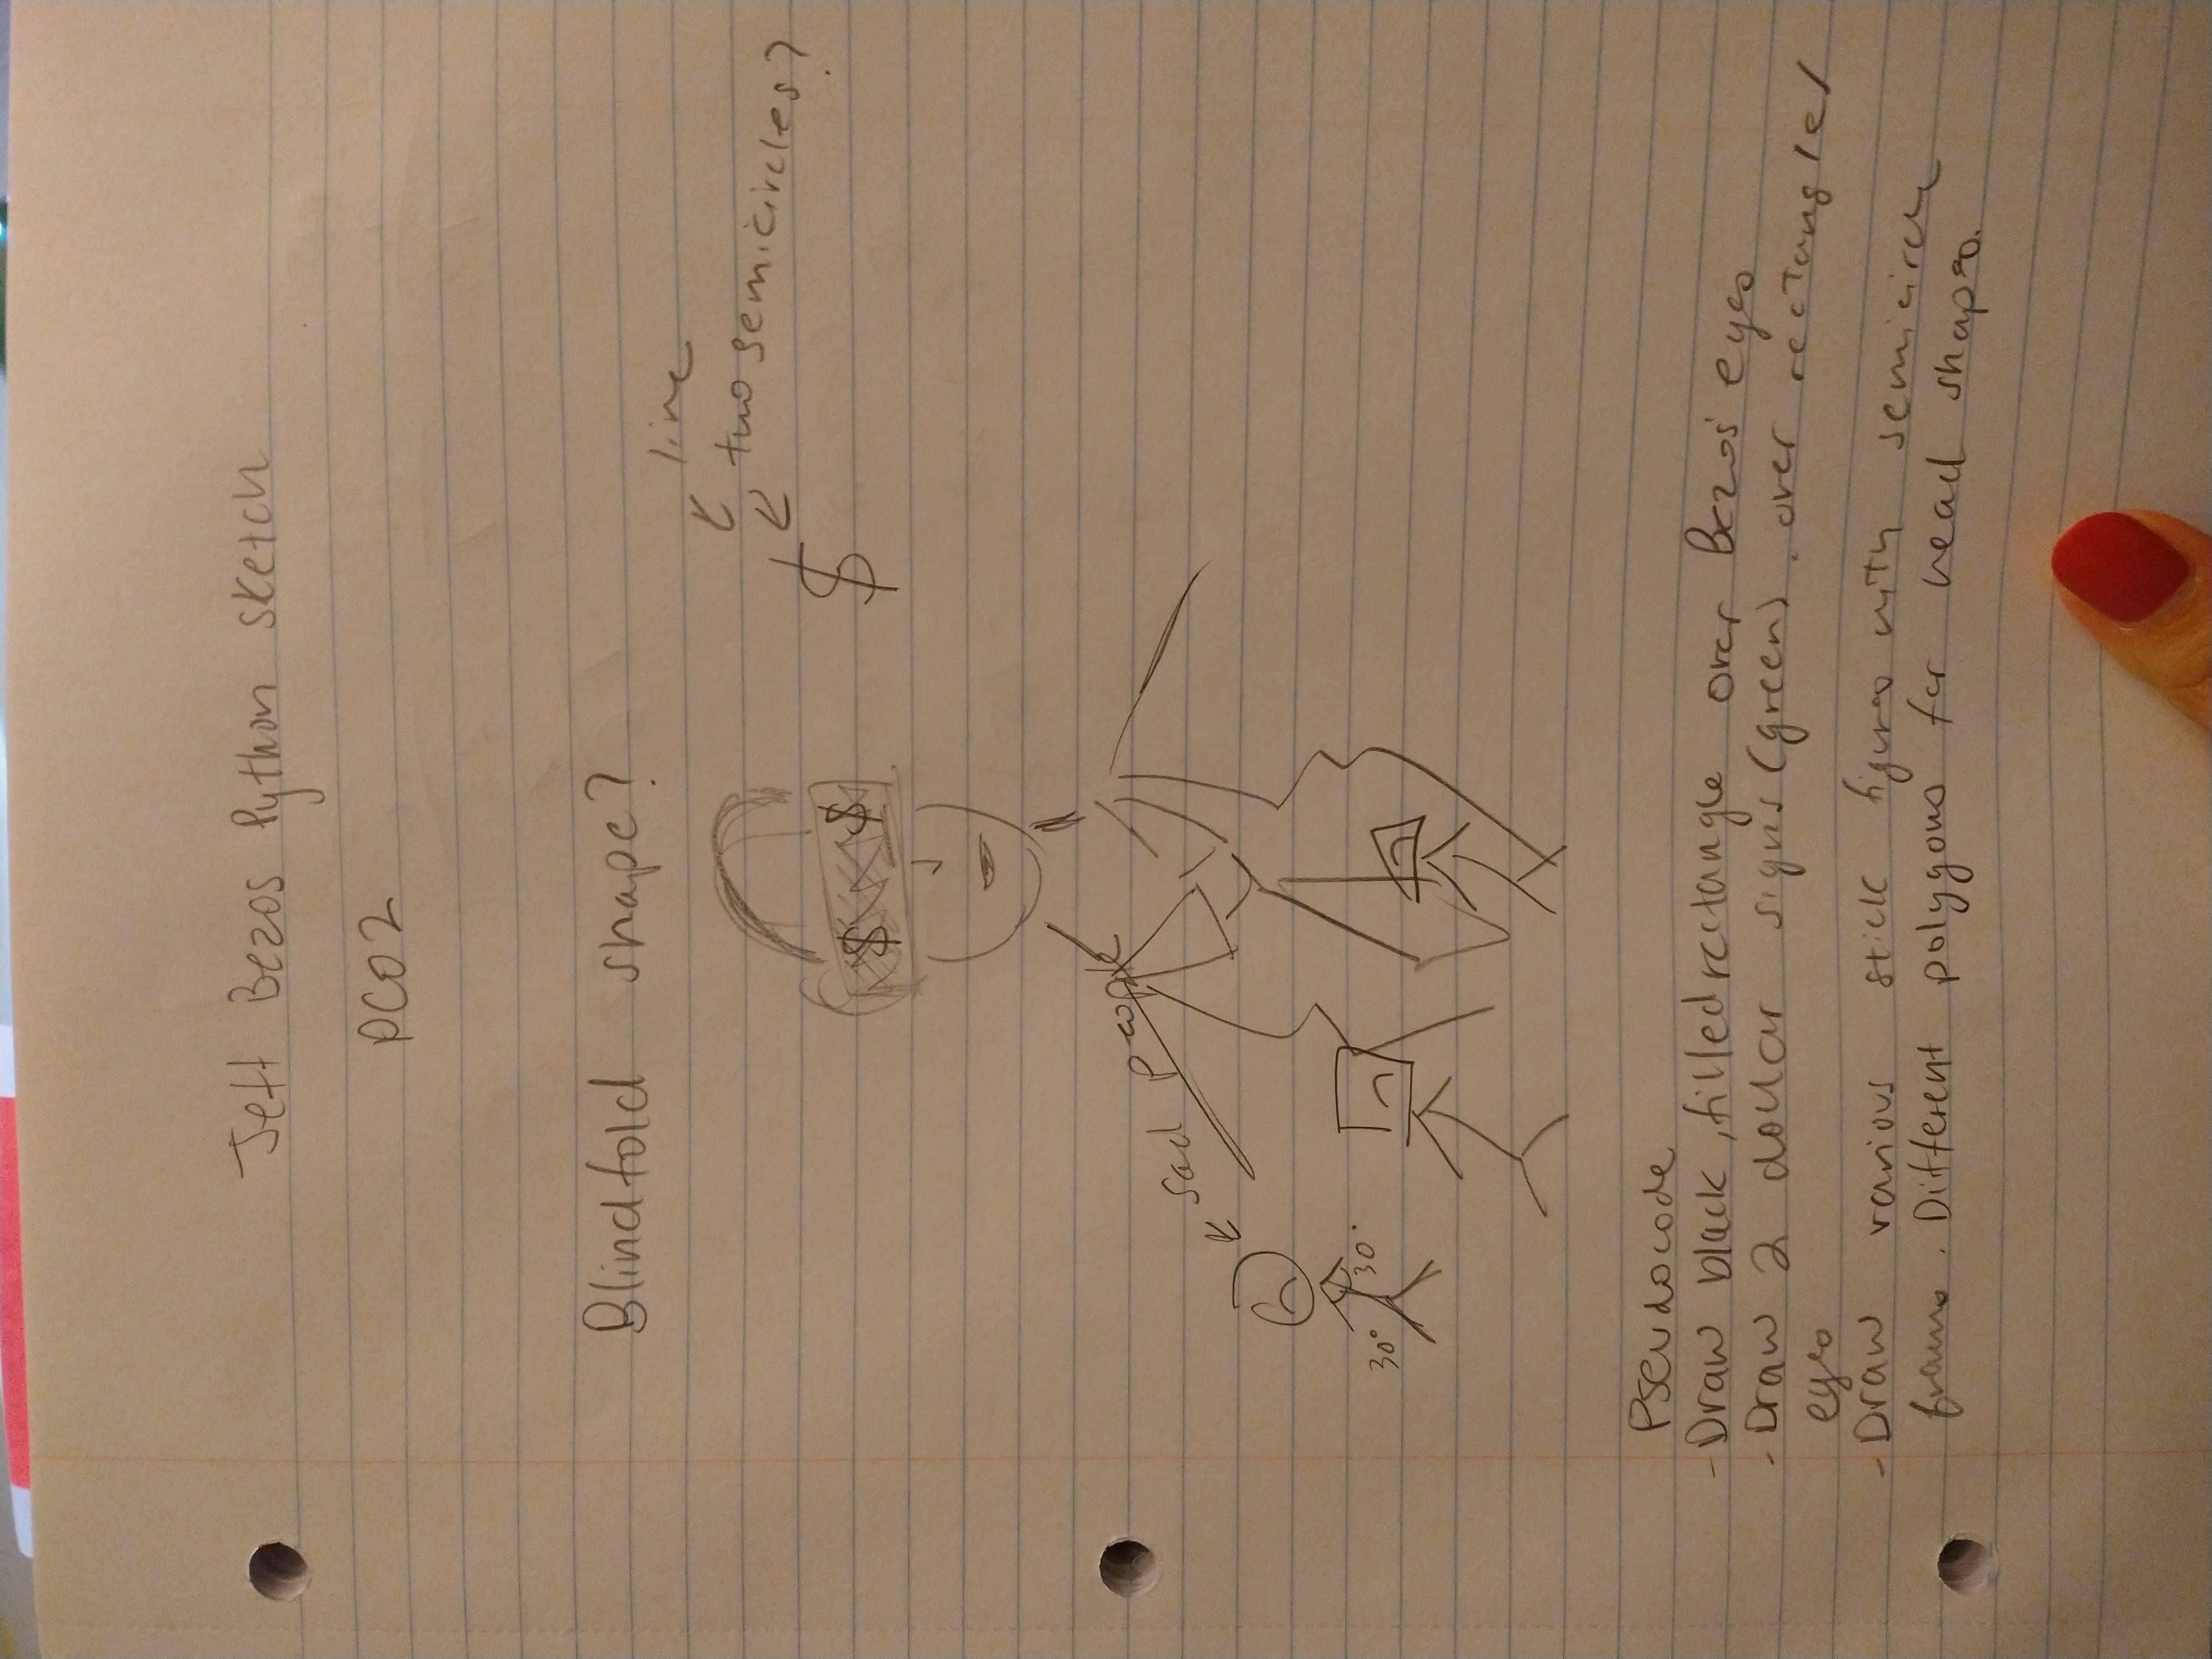 Jeff Bezos Python sketch
PC02
Blindfold shape?
line
two semicircles?
$ $
$
sad people
30° 30°
Pseudocode
- Draw black, filled rectangle over Bezos' eyes
- Draw 2 dollar signs (green) over rectangle/
eyes
- Draw various stick figures with semicircle
frowns. Different polygons for head shapes.